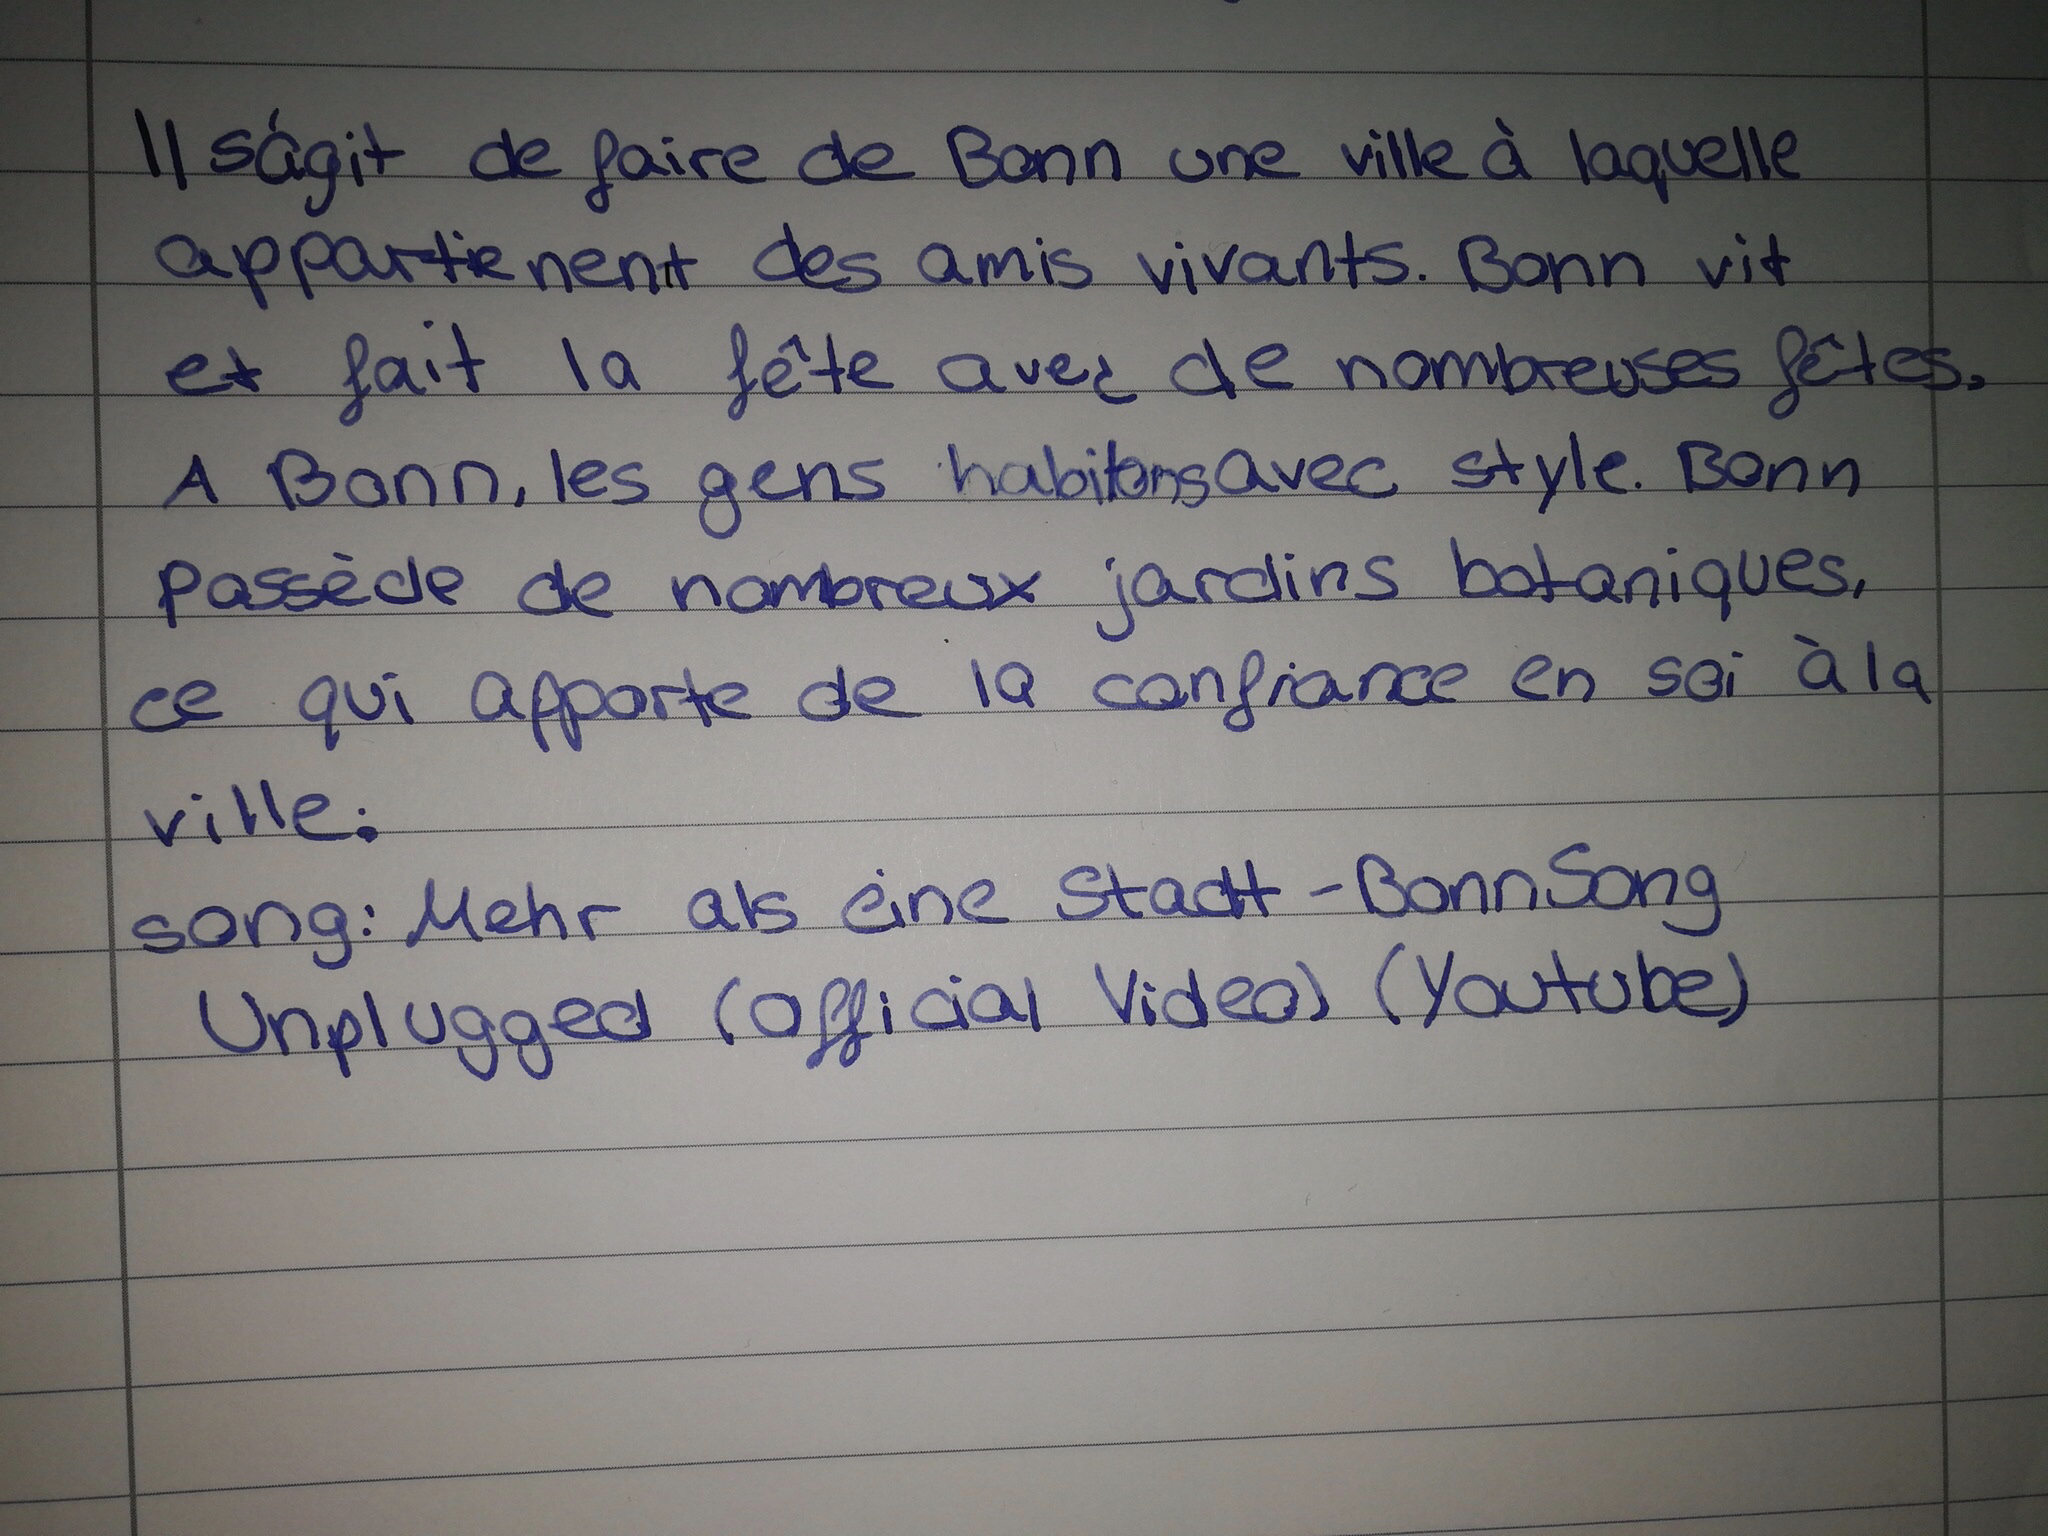 Il ságit de faire de Bonn une ville à laquelle
appartienent des amis vivants. Bonn vit
et fait la fête avec de nombreuses fêtes.
A Bonn, les gens habitons avec style. Bonn
possède de nombreux jardins botaniques,
ce qui apporte de la confiance en soi à la
ville.
song: Mehr als eine Stadt - BonnSong
Unplugged (official Video) (Youtube)